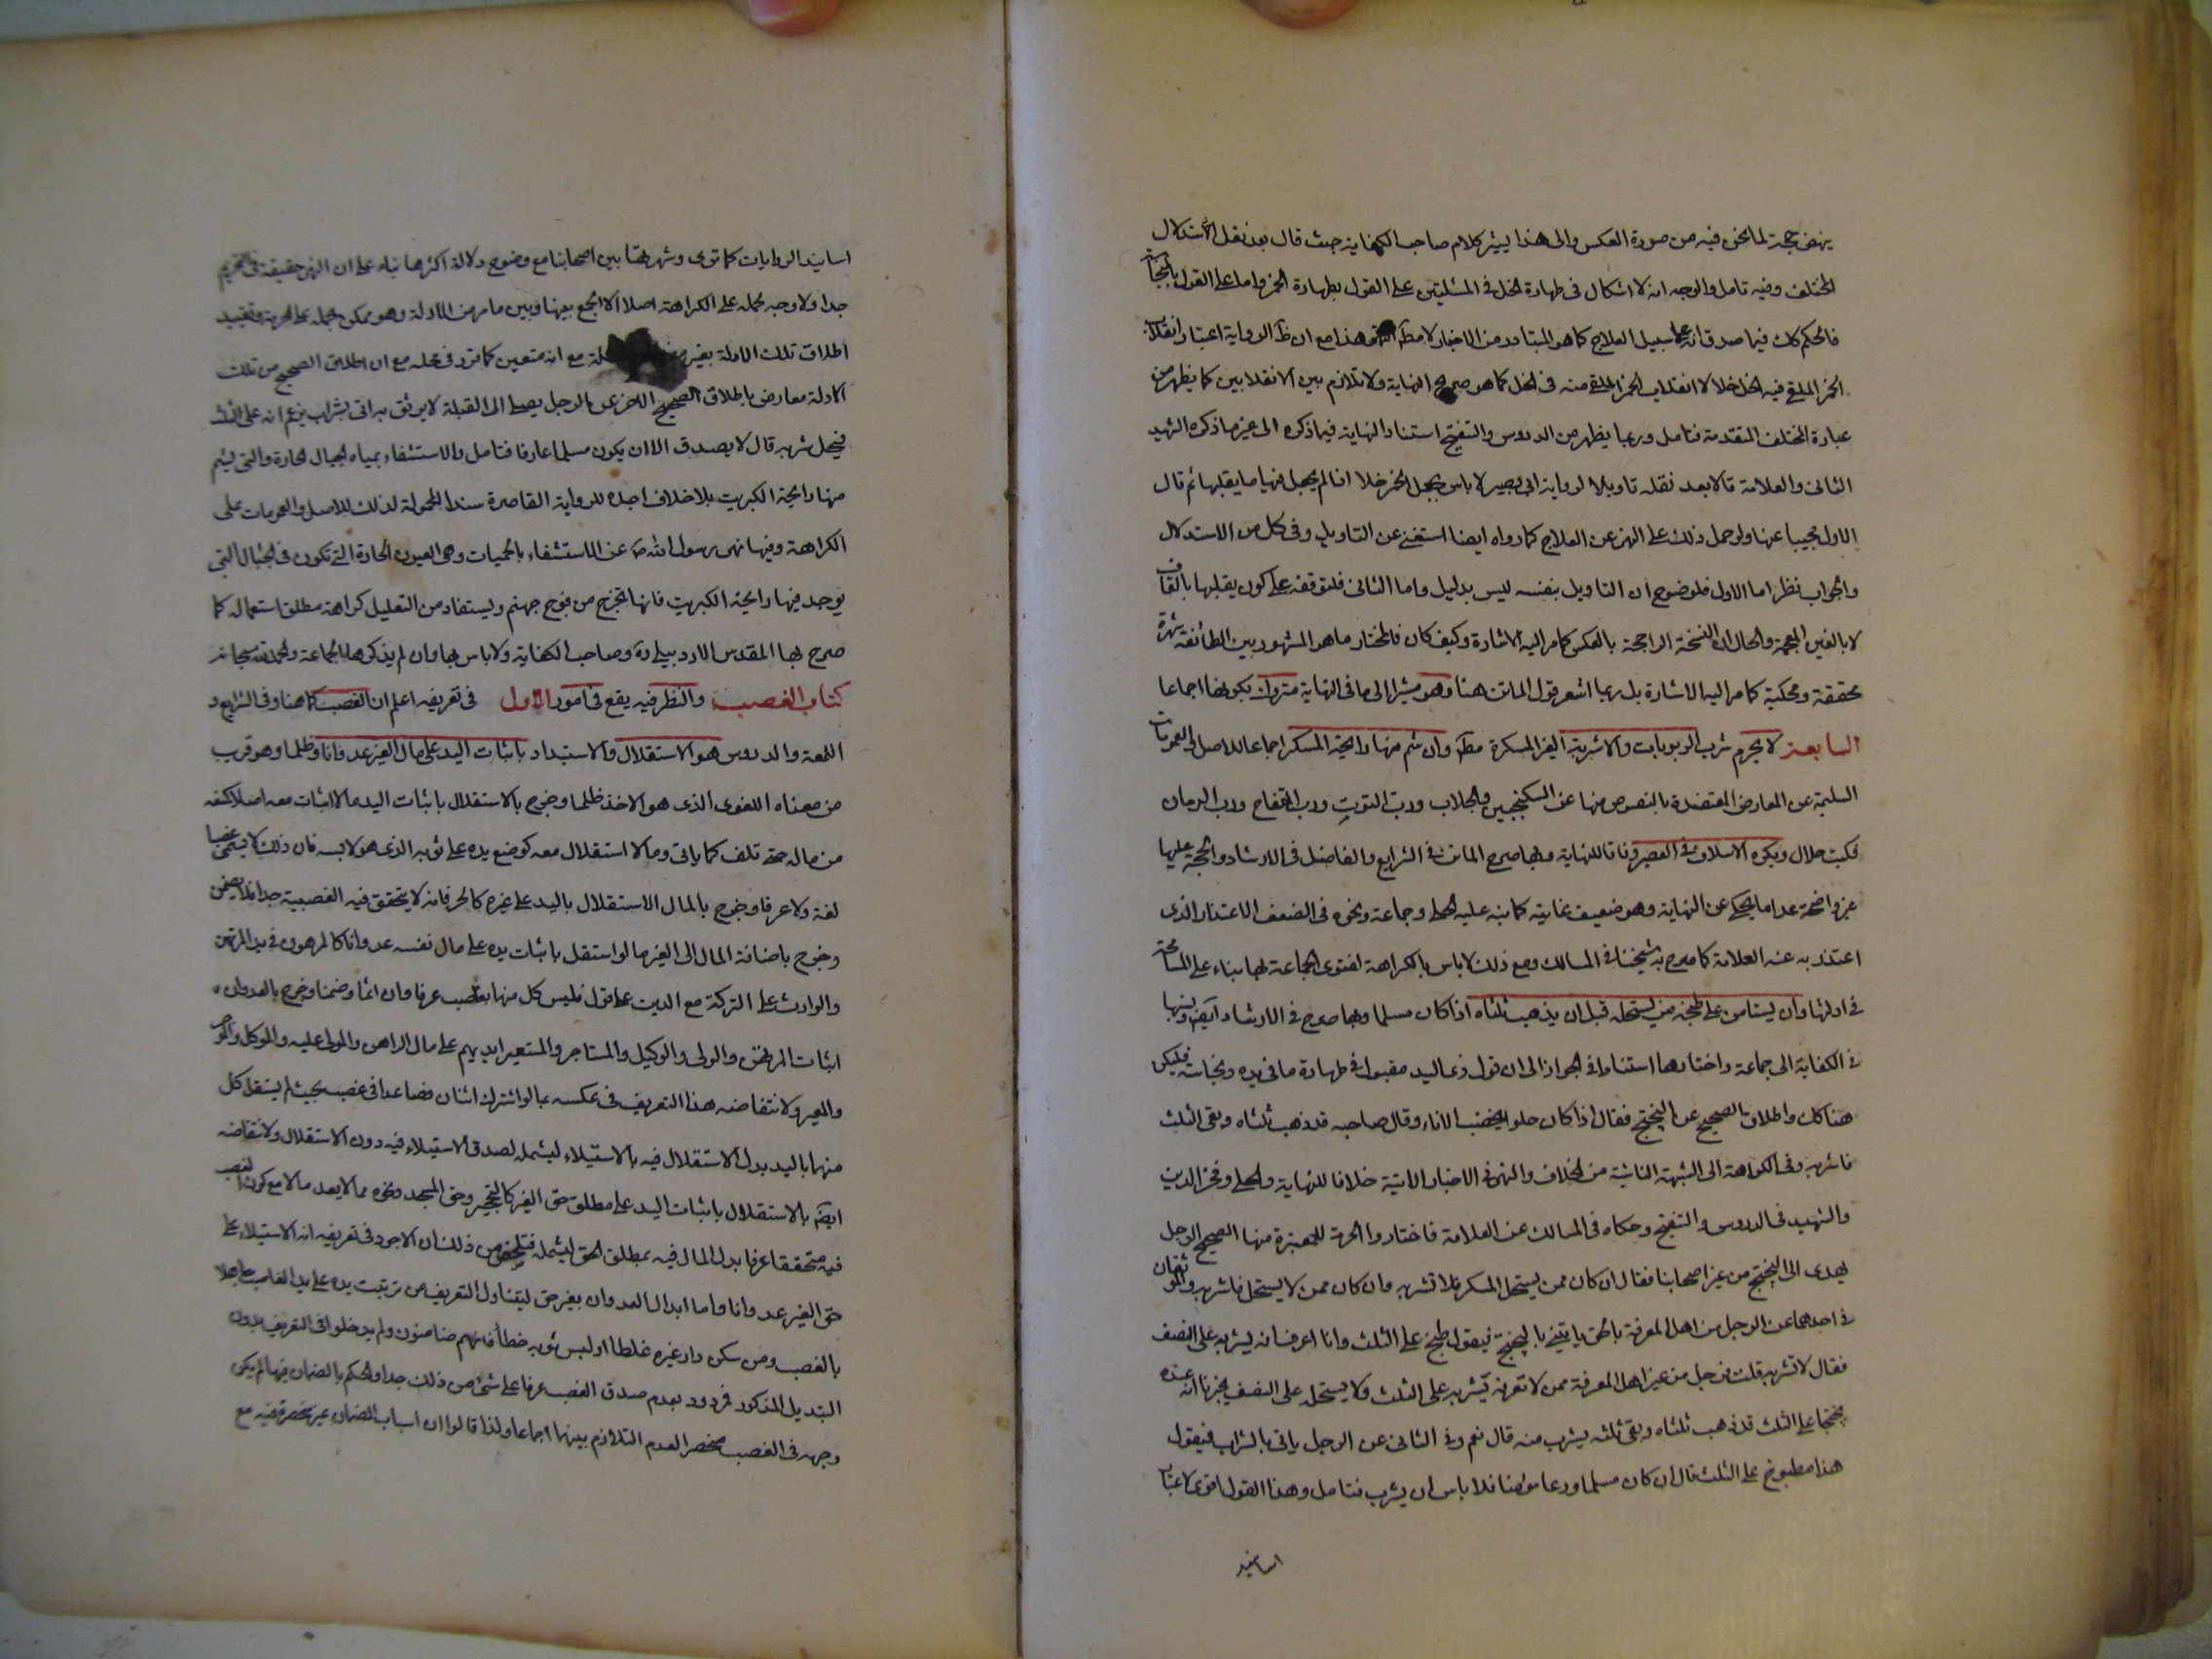 ينهض حجة لما نحن فيه من صورة العكس والى هذا يشير كلام صاحب الكفاية حيث قال بعد نقل الاستدلال
المختلف وفيه تامل والوجه انه لا اشكال في طهارة الخل في المسئلتين على القول بطهارة الخمر واما على القول بالنجاسة
فالحكم كك فيما صدق انه على سبيل العلاج كما هو المتبادر من الاخبار لا مطلقا هذا مع ان ظ الرواية اعتبار انقلاب
الخمر الملقى فيه الخل خلا لا انقلاب الخمر الملقى منه في الخل كما هو صريح النهاية ولا تلازم بين الانقلابين كما يظهر من
عبارة المختلف المتقدمة فتامل وربما يظهر من الدروس والتنقيح استناد النهاية فيما ذكره الى غير ما ذكره الشهيد
الثاني والعلامة قالا بعد نقله تاويلا لرواية ابي بصير لا باس بجعل الخمر خلا اذا لم يجعل فيها ما يقلبها ثم قال
الاول مجيبا عنها ولو حمل ذلك على النهي عن العلاج كما رواه ايضا استغنى عن التاويل وفي كل من الاستدلال
والجواب نظر اما الاول فلوضوح ان التاويل بنفسه ليس بدليل واما الثاني فلتوقفه على كون يقلبها بالقاف
لا بالغين المعجمة والحال ان النسخة الراجحة بالعكس كما مر اليه الاشارة وكيف كان فالمختار ما هو المشهور بين الطائفة شهرة
محققة ومحكية كما مر اليه الاشارة بل ربما اشعر قول الماتن هنا وهو مشيرا الى ما في النهاية متروك بكونها اجماعا
السابعة لا يحرم شرب الربوبات والاشربة الغير المسكرة مط وان شم منها رايحة المسكر اجماعا للاصل والعمومات
السليمة عن المعارض المعتضدة بالنصوص منها عن السكنجبين والجلاب ورب التوت ورب التفاح ورب الرمان
فكتب حلال ويكره الاسلاف في العصير وفاقا للنهاية وبها صرح الماتن في الشرايع والفاضل في الارشاد والحجة عليها
غير واضحة عدا ما يحكى عن النهاية وهو ضعيف غايته كما نبه عليه الحلي وجماعة ونحوه في الضعف الاعتذار الذي
اعتذر به عنه العلامة كما صرح به شيخنا في المسالك ومع ذلك لا باس بالكراهة لفتوى الجماعة بها بناء على المسامحة
في ادلتها وان يستامن على طبخه من يستحله قبل ان يذهب ثلثاه اذا كان مسلما وبها صرح في الارشاد ايضا ونسبها
في الكفاية الى جماعة واختارها استنادا في الجواز الى ان قول ذي اليد مقبول في طهارة ما في يده ونجاسته فليكن
هنا كك واطلاق الصحيح عن البختج فقال اذا كان حلوا يخضب الاناء وقال صاحبه قد ذهب ثلثاه وبقي الثلث
فاشربه وفي الكراهة الى الشبهة الناشئة من الخلاف والنهي في الاخبار الاتية خلافا للنهاية والحلي وفخر الدين
والشهيد في الدروس والتنقيح وحكاه في المسالك عن العلامة فاختاروا الحرمة للمعتبرة منها الصحيح الرجل
يهدى الى البختج من غير اصحابنا فقال ان كان ممن يستحل المسكر فلا تشربه وان كان ممن لا يستحل فاشربه والموثقان
في احدهما عن الرجل من اهل المعرفة بالحق ياتيني بالبختج فيقول طبخ على الثلث وانا اعرف انه يشربه على النصف
فقال لا تشربه قلت فرجل من غير اهل المعرفة ممن لا نعرفه يشربه على الثلث ولا يستحله على النصف يخبرنا ان عنده
بختجا على الثلث قد ذهب ثلثاه وبقي ثلثه يشرب منه قال نعم وفي الثاني عن الرجل ياتي بالشراب فيقول
هذا مطبوخ على الثلث قال ان كان مسلما ورعا مؤمنا فلا باس ان يشرب فتامل وهذا القول اقوى لاعتبار
اسانيد
اسانيد الروايات كما ترى وشهرتها بين اصحابنا مع وضوح دلالة اكثرها بناء على ان النهي حقيقة في التحريم
جدا ولا وجه لحمله على الكراهة اصلا الا الجمع بينها وبين ما مر من الادلة وهو ممكن بحمله على الحرمة وتقييد
اطلاق تلك الادلة بغير مع انه متعين كما تقرر في محله مع ان اطلاق الصحيح من تلك
الادلة معارض باطلاق الصحيح الاخر عن الرجل يصلي الى القبلة لا يوثق به اتى بشراب يزعم انه على الثلث
فيحل شربه قال لا يصدق الا ان يكون مسلما عارفا فتامل والاستشفاء بمياه الجبال الحارة والتي يشم
منها رايحة الكبريت بلا خلاف اجده للرواية القاصرة سندا المحمولة لذلك للاصل والعمومات على
الكراهة وفيها نهى رسول الله ص عن الاستشفاء بالحميات وهي العيون الحارة التي تكون في الجبال التي
يوجد فيها رايحة الكبريت فانها تخرج من فوح جهنم ويستفاد من التعليل كراهة مطلق استعماله كما
صرح بها المقدس الاردبيلي ره وصاحب الكفاية ولا باس بها وان لم يذكرها الجماعة والحمد لله سبحانه
كتاب الغصب والنظر فيه يقع في امور الاول في تعريفه اعلم ان الغصب كما هنا وفي الشرايع و
اللمعة والدروس هو الاستقلال والاستبداد باثبات اليد على مال الغير عدوانا وظلما وهو قريب
من معناه اللغوي الذي هو الاخذ ظلما وخرج بالاستقلال باثبات اليد ما لا اثبات معه اصلا كمنعه
من ماله حتى تلف كما ياتي وما لا استقلال معه كوضع يده على ثوبه الذي هو لابسه فان ذلك لا يسمى غصبا
لغة ولا عرفا وخرج بالمال الاستقلال باليد على غيره كالحر فانه لا يتحقق فيه الغصبية جدا فلا يضمن
وخرج باضافة المال الى الغير ما لو استقل باثبات يده على مال نفسه عدوانا كالمرهون في يد المرتهن
والوارث على التركة مع الدين على قول فليس كل منها بغصب عرفا وان اثما وضمنا وخرج بالعدوان
اثبات المرتهن والولي والوكيل والمستاجر والمستعير ايديهم على مال الراهن والمولى عليه والموكل والموجر
والمعير ولانتقاض هذا التعريف في عكسه بما لو اشترك اثنان فصاعدا في غصب بحيث لم يستقل كل
منهما باليد بدل الاستقلال فيه بالاستيلاء ليشمله لصدق الاستيلاء فيه دون الاستقلال ولانتقاضه
ايضا بالاستقلال باثبات اليد على مطلق حق الغير كالتحجير وحق المسجد ونحوه مما لا يعد مالا مع كون الغصب
فيه متحققا عرفا بدل المال فيه بمطلق الحق ليشمله فتلخص من ذلك ان الاجود في تعريفه انه الاستيلاء على
حق الغير عدوانا واما ابدال العدوان بغير حق ليتناول التعريف من ترتبت يده على يد الغاصب جاهلا
بالغصب ومن سكن دار غيره غلطا او لبس ثوبه خطأ فانهم ضامنون ولم يدخلوا في التعريف بدون
التبديل المذكور فمردود بعدم صدق الغصب عرفا على شئ من ذلك جدا والحكم بالضمان فيها لم يكن
وجهه في الغصب منحصرا لعدم التلازم بينهما اجماعا ولذا قالوا ان اسباب الضمان غير منحصرة فيه مع